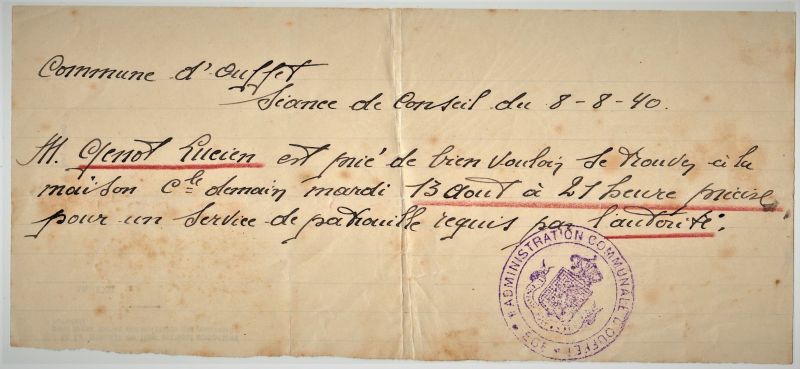 Commune d'Ouffet
Séance de Conseil du 8-8-40.
M. Genot Lucien est prié de bien vouloir se trouver à la
maison Cle demain mardi 13 août à 21 heure précise
pour un service de patrouille requis par l'autorité.
ADMINISTRATION COMMUNALE D'OUFFET